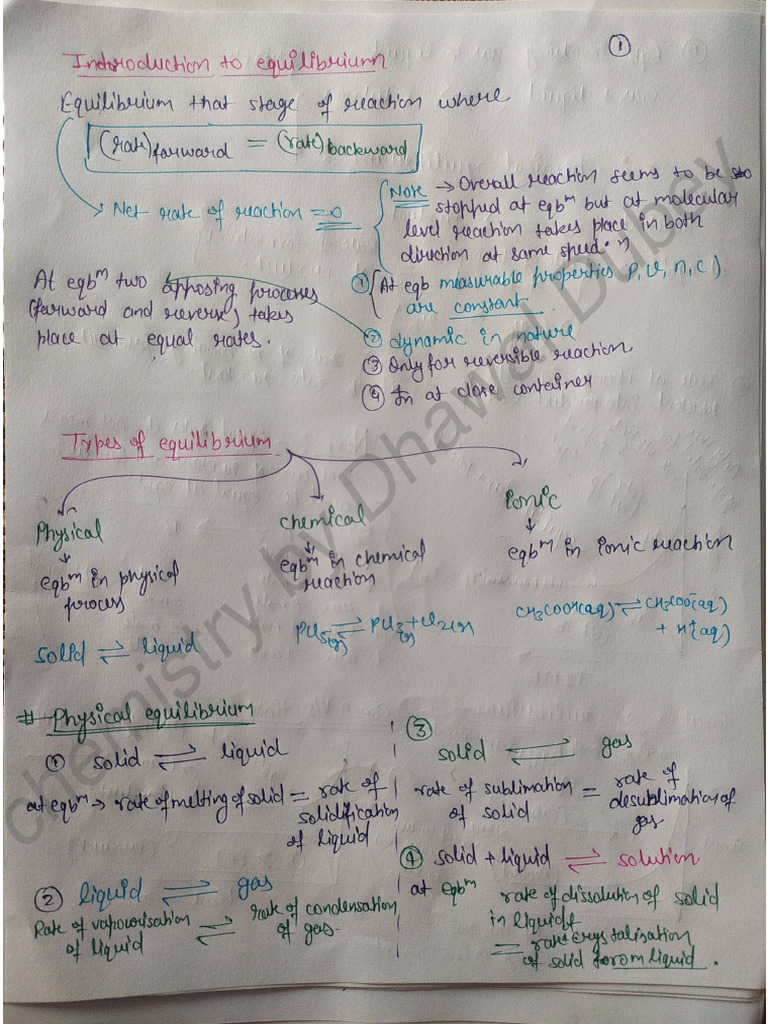 ①
Introduction to equilibrium
Equilibrium that stage of reaction where
(rate)forward = (rate)backward
→ Net rate of reaction = 0
Note → Overall reaction seems to be sto
stopped at eqbm but at molecular
level reaction takes place in both
direction at same speed.
At eqbm two opposing processes
(forward and reverse) takes
place at equal rates.
① At eqb measurable properties P, V, n, C)
are constant.
② dynamic in nature
③ Only for reversible reaction
④ In at close container
Types of equilibrium
Physical
↓
eqbm in physical
process
solid ⇌ liquid
chemical
↓
eqbm in chemical
reaction
PCl5(g) ⇌ PCl3(g) + Cl2(g)
ionic
↓
eqbm in ionic reaction
CH3COOH(aq) ⇌ CH3COO-(aq)
+ H+(aq)
# Physical equilibrium
① solid ⇌ liquid
at eqbm → rate of melting of solid = rate of
solidification
of liquid
② liquid ⇌ gas
Rate of vapourisation ⇌ Rate of condensation
of liquid of gas.
③
solid ⇌ gas
rate of sublimation = rate of
of solid desublimation of
gas
④ solid + liquid ⇌ solution
at eqbm rate of dissolution of solid
in liquid
= rate crystalisation
of solid from liquid.
chemistry by Dhawal Dubey